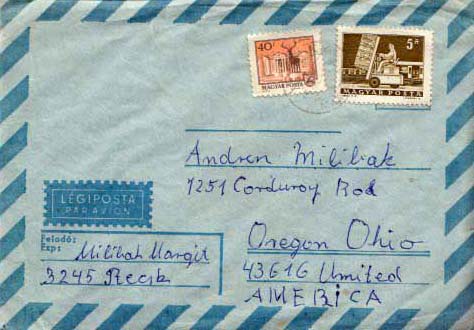 40f
MAGYAR POSTA
5 Ft
MAGYAR POSTA
Andren Milibak
1251 Corduroy Rod
LÉGIPOSTA
PAR AVION
Oregon Ohio
Feladó:
Exp:
Milibak Margit
3245 Recsk
43616 United
AMERICA